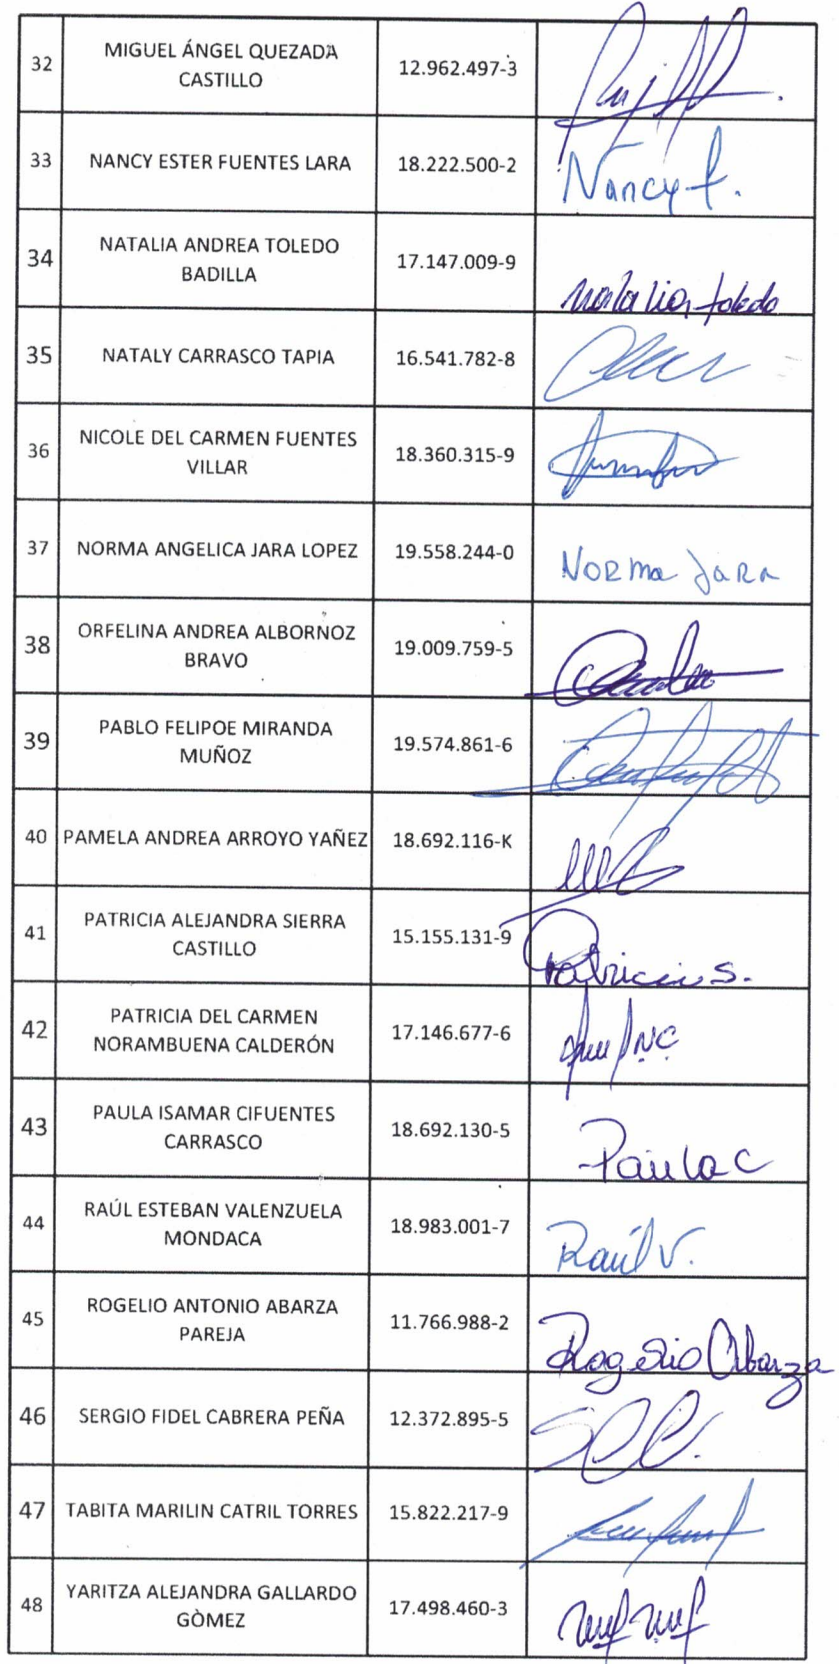 32 MIGUEL ÁNGEL QUEZADA CASTILLO 12.962.497-3
33 NANCY ESTER FUENTES LARA 18.222.500-2 Nancy f.
34 NATALIA ANDREA TOLEDO BADILLA 17.147.009-9 Natalia toledo
35 NATALY CARRASCO TAPIA 16.541.782-8
36 NICOLE DEL CARMEN FUENTES VILLAR 18.360.315-9
37 NORMA ANGELICA JARA LOPEZ 19.558.244-0 Norma Jara
38 ORFELINA ANDREA ALBORNOZ BRAVO 19.009.759-5
39 PABLO FELIPOE MIRANDA MUÑOZ 19.574.861-6
40 PAMELA ANDREA ARROYO YAÑEZ 18.692.116-K
41 PATRICIA ALEJANDRA SIERRA CASTILLO 15.155.131-9 Patricia S.
42 PATRICIA DEL CARMEN NORAMBUENA CALDERÓN 17.146.677-6
43 PAULA ISAMAR CIFUENTES CARRASCO 18.692.130-5 Paula C
44 RAÚL ESTEBAN VALENZUELA MONDACA 18.983.001-7 Raúl V.
45 ROGELIO ANTONIO ABARZA PAREJA 11.766.988-2 Rogelio Abarza
46 SERGIO FIDEL CABRERA PEÑA 12.372.895-5
47 TABITA MARILIN CATRIL TORRES 15.822.217-9
48 YARITZA ALEJANDRA GALLARDO GÒMEZ 17.498.460-3